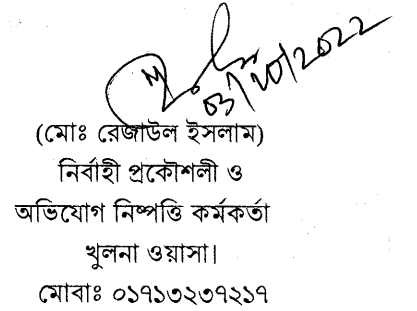 ০৩/১০/২০২২
(মোঃ রেজাউল ইসলাম)
নির্বাহী প্রকৌশলী ও
অভিযোগ নিষ্পত্তি কর্মকর্তা
খুলনা ওয়াসা।
মোবাঃ ০১৭১৩২৩৭২১৭